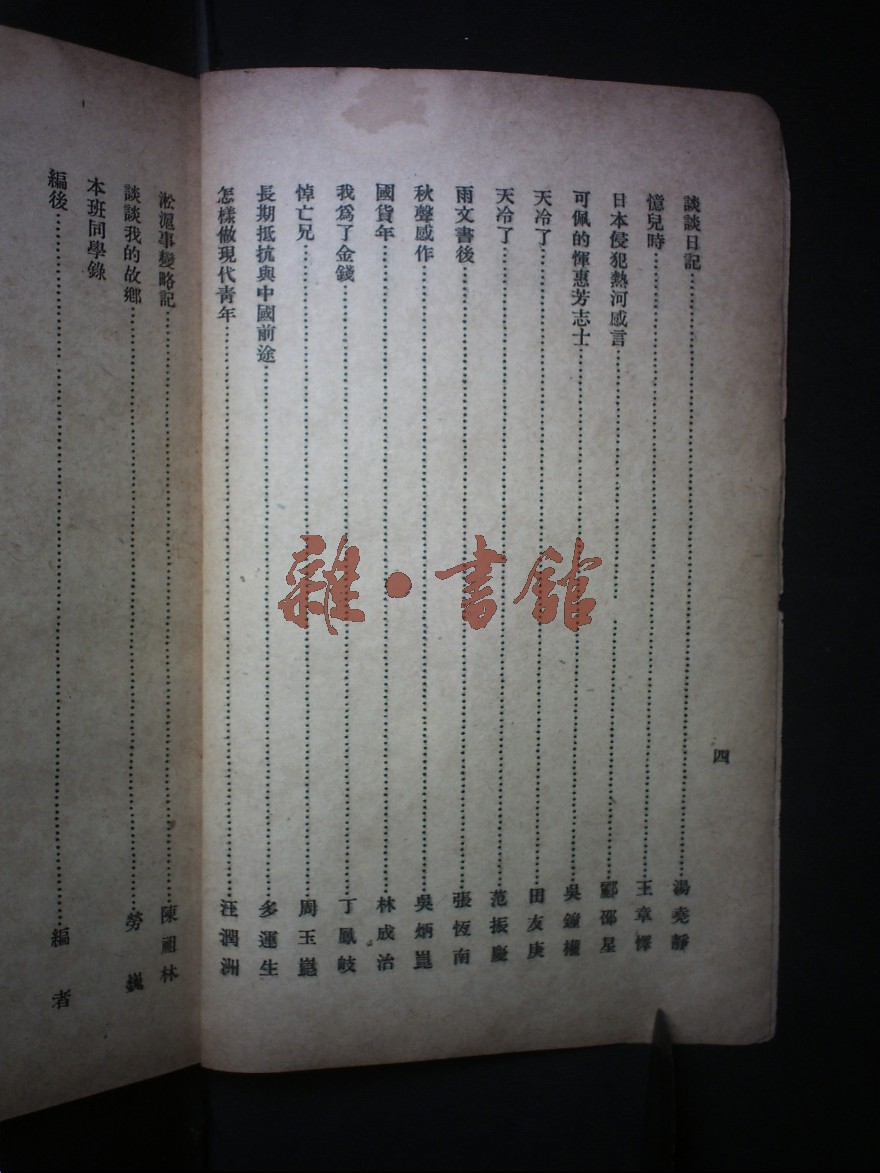 四
談談日記……湯堯靜
憶兒時……王章懌
日本侵犯熱河感言……鄒邵星
可佩的惲惠芳志士……吳鐘權
天冷了……田友庚
天冷了……范振慶
雨文書後……張恆南
秋聲感作……吳炳崑
國貨年……林成治
我爲了金錢……丁鳳岐
悼亡兄……周玉崑
長期抵抗與中國前途……多運生
怎樣做現代青年……汪潤洲
淞滬事變略記……陳祖林
談談我的故鄉……勞巍
本班同學錄
編後……編者
雜·書館